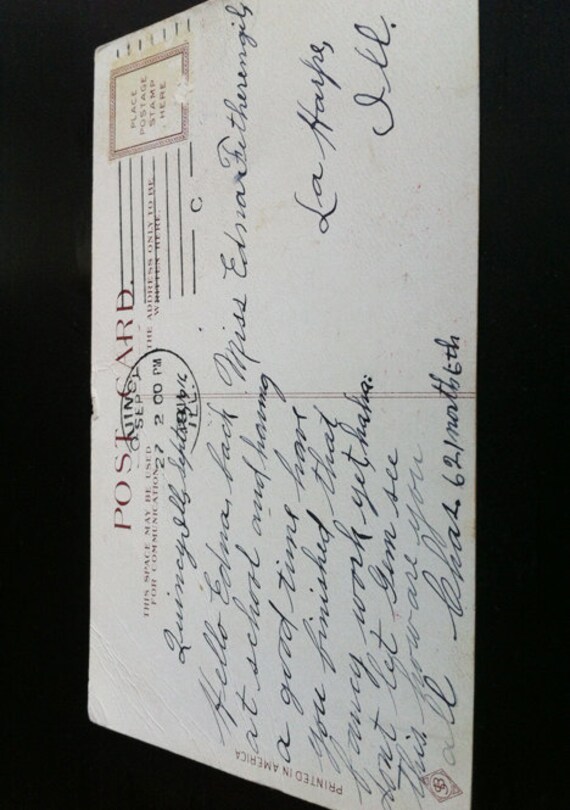 POST CARD.
THIS SPACE MAY BE USED
FOR COMMUNICATION
THE ADDRESS ONLY TO BE
WRITTEN HERE.
PLACE
POSTAGE
STAMP
HERE
QUINCY
SEP
27 2 00 PM
ILL.
C
Quincy Ills, Sept
Hello Edna, back
at school and having
a good time have
you finished that
fancy work yet, haha.
dont let Gem see
this, how are you
all Chas. 621 north 6th
Miss Edna Fetherengill
La Harpe,
Ill.
PRINTED IN AMERICA